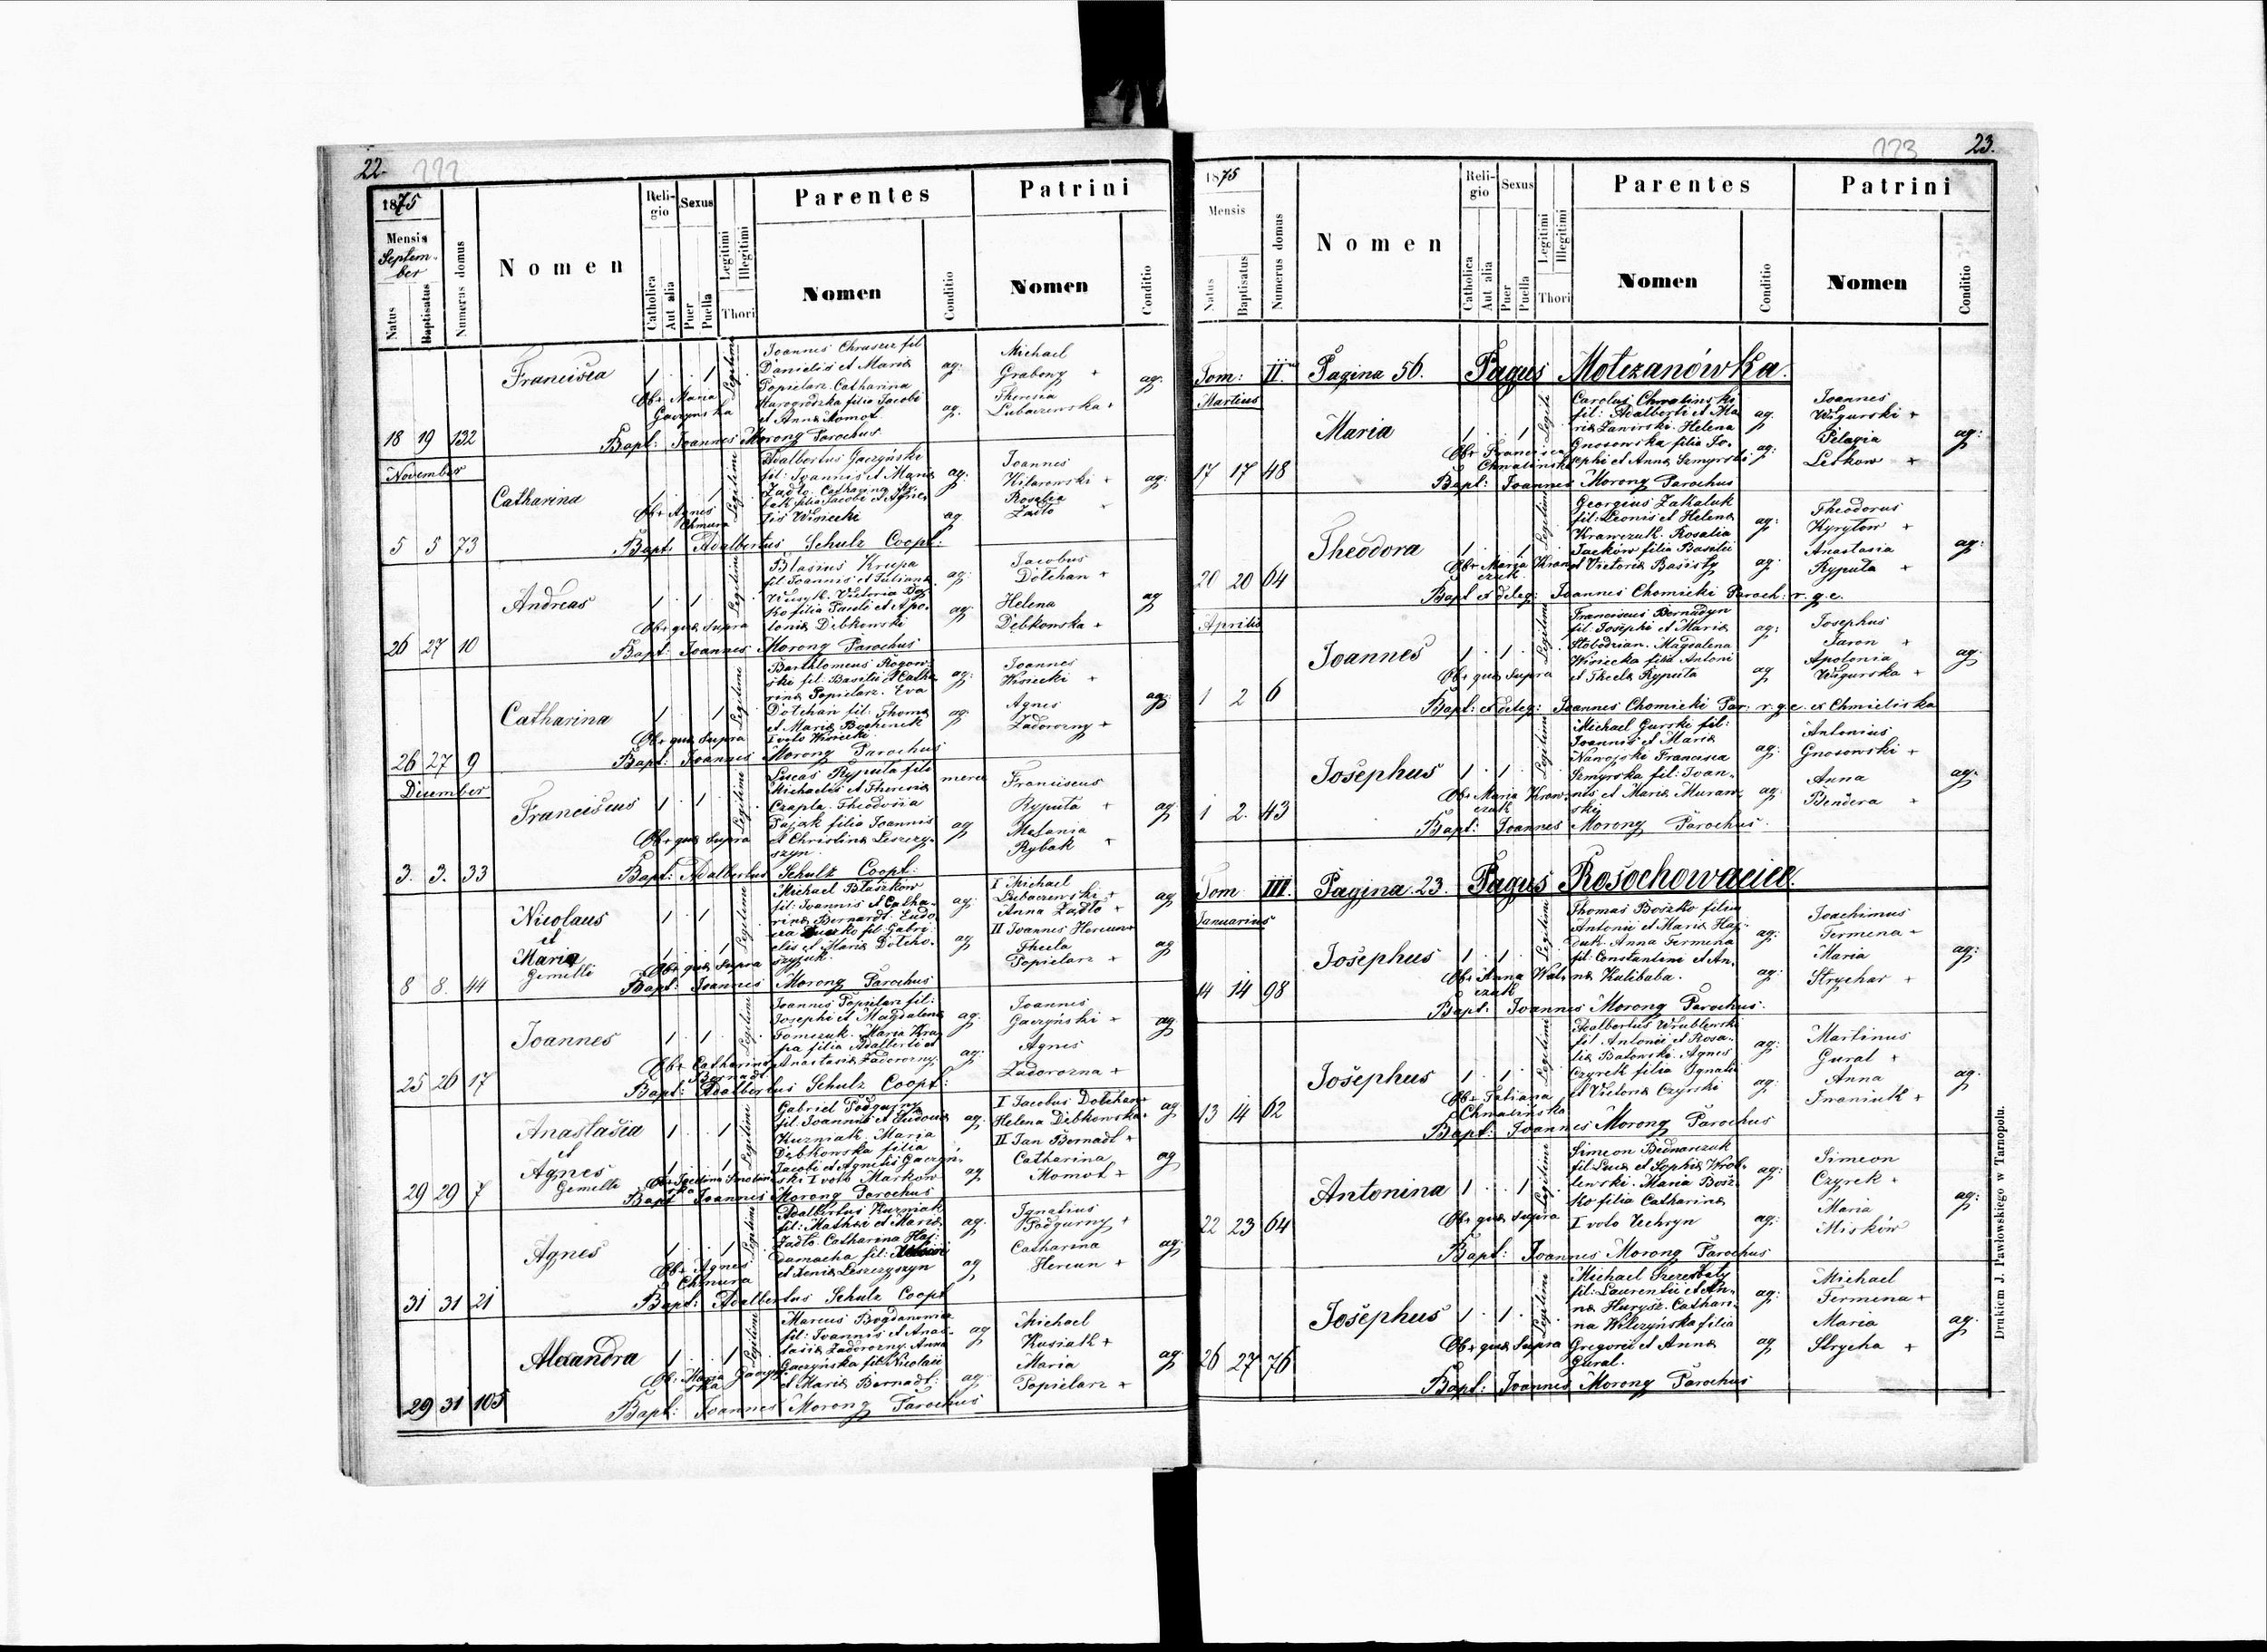 22.
222
1875
Mensis
Septem-
ber
Natus
Baptisatus
Numerus domus
Nomen
Reli-
gio
Catholica
Aut alia
Sexus
Puer
Puella
Legitimi
Illegitimi
Thori
Parentes
Nomen
Conditio
Patrini
Nomen
Conditio
18 19 132
Francisca
1 1
Legitimi
Obs. Maria
Gaczyńska
Joannes Chruszcz fil
Danielis et Mariæ
Popielarz. Catharina
filia Jacobi
et Annæ Momot
ag:
ag.
Michael
Grabony +
Theresia
Lubaczewska +
ag:
Bapt: Joannes Morong Parochus
November
5 5 73
Catharina
1 1
Legitimi
Obs. Agnes
Chmura
Adalbertus Gaczyński
fil: Joannis et Mariæ
Żadło. Catharina
filia Jacobi et Agne-
tis Wisiecki
ag:
ag
Joannes
Kitarowski +
Rosalia
Żadło
ag:
Bapt: Adalbertus Schulz Coopt:
26 27 10
Andreas
1 1
Legitimi
Obs. quæ supra
Blasius Krupa
fil Joannis et Julianæ
Victoria
filia Pauli et Apo-
loniæ Dębkowski
ag:
ag.
Jacobus
Dołchan +
Helena
Dębkowska +
ag
Bapt: Joannes Morong Parochus
26 27 9
Catharina
1 1
Legitimi
Obs. quæ supra
Barthlomeus Rogow-
ski fil: Basilii et Catha-
rinæ Popielarz. Eva
Dołchan fil: Thomæ
et Mariæ Bochenek
I voto Wisiecki
ag:
ag:
Joannes
Wisiecki +
Agnes
Zadorozny +
ag:
Bapt: Joannes Morong Parochus
December
3. 3. 33
Franciscus
1 1
Legitimi
Obs. quæ supra
Lucas Ryputa filii
Michaelis et Theresiæ
Czapla. Theodosia
Pająk filia Joannis
et Christinæ Leszczy-
szyn.
merc
ag
Franciscus
Ryputa +
Melania
Rybak +
ag
Bapt: Adalbertus Schulz Coopt:
8 8. 44
Nicolaus
et
Maria
Gemelli
1 1
1 1
Legitimi
Obs. quæ supra
Michael Błaszków
fil: Joannis et Catha-
rinæ Bernardt. Eudo
fil: Gabri-
elis et Mariæ Dołcho-
szyjuk.
ag:
ag
I Michael
Lubaczewski +
Anna Żadło +
II Joannes Hercun +
Thecla
Popielarz +
ag
ag
Bapt: Joannes Morong Parochus
25 26 17
Joannes
1 1
Legitimi
Obs. Catharina
Bernadt
Joannes Popielarz fil:
Josephi et Magdalenæ
Tomczuk. Maria Kru-
pa filia Adalberti et
Anastasiæ Zadorozny.
ag.
ag:
Joannes
Gaczyński +
Agnes
Zadorozna +
ag
Bapt: Adalbertus Schulz Coopt:
29 29 7
Anastasia
et
Agnes
Gemelli
1 1
1 1
Legitimi
Gabriel Podgurny
fil: Joannis et Eudociæ
Kuzniak. Maria
Dębkowska filia
Jacobi et Agnetis Gaczyń-
ski I voto Marków
ag.
ag
I Jacobus Dołchan +
Helena Dębkowska +
II Jan Bernadt +
Catharina
Momot +
ag
ag
Bapt: Joannes Morong Parochus
31 31 21
Agnes
1 1
Legitimi
Obs. Agnes
Chmura
Adalbertus Kuzniak
fil: Mathæi et Mariæ
Żadło. Catharina Haj-
damacha fil:
et Xeniæ Leszczyszyn
ag.
ag
Ignatius
Podgurny +
Catharina
Hercun +
ag:
Bapt: Adalbertus Schulz Coopt
29 31 105
Alexandra
1 1
Legitimi
Obs. Maria Gaczyń-
ska
Marcus Bogdanowicz
fil: Joannis et Anas-
tasiæ Zadorozny. Anna
Gaczyńska fil: Nicolai
et Mariæ Bernadt.
ag
ag:
Michael
Kusiak +
Maria
Popielarz +
ag:
Bapt: Joannes Morong Parochus
23.
223
1875
Mensis
Natus
Baptisatus
Numerus domus
Nomen
Reli-
gio
Catholica
Aut alia
Sexus
Puer
Puella
Legitimi
Illegitimi
Thori
Parentes
Nomen
Conditio
Patrini
Nomen
Conditio
Tom: II Pagina 56. Pagus Mołczanówka.
Martius
17 17 48
Maria
1 1
Legiti
Obs. Francisca
Chwalińska
Carolus Chwaliński
fil: Adalberti et Ma
riæ Zawirski. Helena
Gnosowska filia Jo-
sephi et Annæ Szmyrski
ag.
ag:
Joannes
Wigurski +
Pelagia
Leśkow +
ag:
Bapt: Joannes Morong Parochus
20 20 64
Theodora
1 1
Legitimi
Obs. Maria Kraw-
czuk
Georgius Zakaluk
fil: Leonis et Helenæ
Krawczuk. Rosalia
Jacków filia Basilii
et Victoriæ Basisty
ag:
ag:
Theodorus
Kyrylow +
Anastasia
Ryputa +
ag:
Bapt et deleg: Joannes Chomicki Paroch: r. g. c.
Aprilis
1 2 6
Joannes
1 1
Legitimi
Obs. quæ supra
Franciscus Bernadyn
fil: Josephi et Mariæ
Słobodzian. Magdalena
Wisiecka filia Antoni
et Theclæ Ryputa
ag:
ag
Josephus
Jaron +
Apolonia
Wigurska +
ag.
Bapt: et deleg: Joannes Chomicki Par: r. g. c. ex Chmieliska
1 2. 43
Josephus
1 1
Legitimi
Obs. Maria Kraw-
czuk
Michael Gurski fil:
Joannis et Mariæ
Nawojski Francisca
Szmyrska fil: Joan-
nis et Mariæ Muraw-
ski
ag:
ag:
Antonius
Gnosowski +
Anna
Bendera +
ag:
Bapt: Joannes Morong Parochus.
Tom III. Pagina 23. Pagus Rosochowaciec.
Januarius
14 14 98
Josephus
1 1
Legitimi
Obs. Anna Wal-
czuk
Thomas Boszko filius
Antonii et Mariæ Haj-
duk. Anna Fermena
fil: Constantini et An-
næ Kulibaba.
ag:
ag:
Joachimus
Fermena +
Maria
Strychar +
ag:
Bapt: Joannes Morong Parochus.
13 14 62
Josephus
1 1
Legitimi
Obs. Tatiana
Chwalińska
Adalbertus Wrublewski
fil Antonii et Rosa-
liæ Batowski. Agnes
Czyrek filia Ignatii
et Victoriæ Czyrski
ag:
ag:
Martinus
Gural +
Anna
Iwaniuk +
ag:
Bapt: Joannes Morong Parochus
22 23 64
Antonina
1 1
Legitimi
Obs. quæ supra
Simeon Bednarczuk
fil: Lucæ et Sophiæ Wrob-
lewski. Maria Bosz-
ko filia Catharinæ
I voto Uchryn
ag:
ag:
Simeon
Czyrek +
Maria
Misków
ag:
Bapt: Joannes Morong Parochus
26 27 76
Josephus
1 1
Legitimi
Obs. quæ supra
Michael Szczerbaty
fil: Laurentii et An-
næ Hurysz. Cathari-
na Wilczyńska filia
Gregorii et Annæ
Gural.
ag:
ag
Michael
Fermena +
Maria
Strycha +
ag.
Bapt: Joannes Morong Parochus
Drukiem J. Pawłowskiego w Tarnopolu.